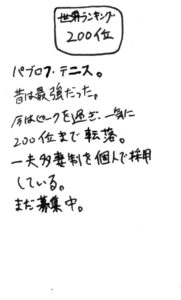 世界ランキング
200位
パブロフ・テニス。
昔は最強だった。
今はピークを過ぎ、一気に
200位まで転落。
一夫多妻制を個人で採用
している。
まだ募集中。